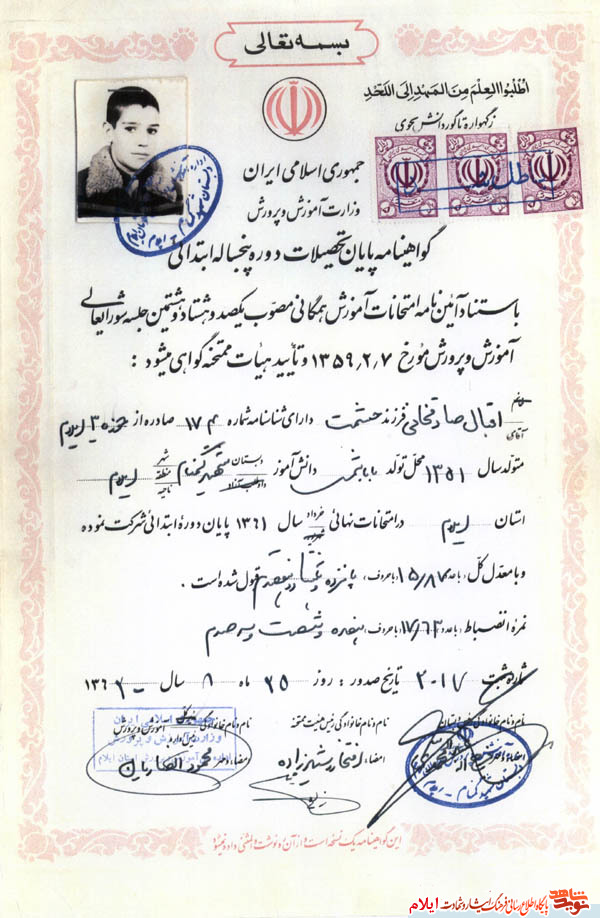 بسمه تعالی
اطلبوا العلم من المهد الی اللحد
زگهواره تا گور دانش بجوی
جمهوری اسلامی ایران
وزارت آموزش و پرورش
گواهینامه پایان تحصیلات دوره پنجساله ابتدائی
باستناد آئین نامه امتحانات آموزش همگانی مصوب یکصد و هشتاد و هشتمین جلسه شورایعالی
آموزش و پرورش مورخ ۱۳۵۹٫۲٫۷ و تأیید هیأت ممتحنه گواهی میشود :
آقای اقبال صادقخانی فرزند حشمت دارای شناسنامه شماره ۱۷۴ صادره از حوزه ۳ ایلام
متولد سال ۱۳۵۱ محل تولد دانش آموز دبستان شهید گمنام شهر منطقه ناحیه ایلام
استان ایلام در امتحانات نهائی خرداد شهریور سال ۱۳۶۱ پایان دورهٔ ابتدائی شرکت نموده
و با معدل کل، باعدد ۱۵/۸۷ باحروف، پانزده و هشتاد و هفت صدم قبول شده است .
نمره انضباط، باعدد ۱۷/۶۳ باحروف، هفده و شصت و سه صدم
شماره ثبت ۲۰۱۷ تاریخ صدور : روز ۲۵ ماه ۸ سال ۱۳۶۲
نام و نام خانوادگی نام و نام خانوادگی رئیس هیئت ممتحنه نام و نام خانوادگی آموزش و پرورش
امضاء امضاء افتخار شهرزاده امضاء محمود انصاریان
جمهوری اسلامی ایران
وزارت آموزش و پرورش
استان ایلام
این گواهینامه یک نسخه است و از آن رونوشت و المثنی داده نمیشود
نوید شاهد پایگاه اطلاع رسانی فرهنگ ایثار و شهادت ایلام